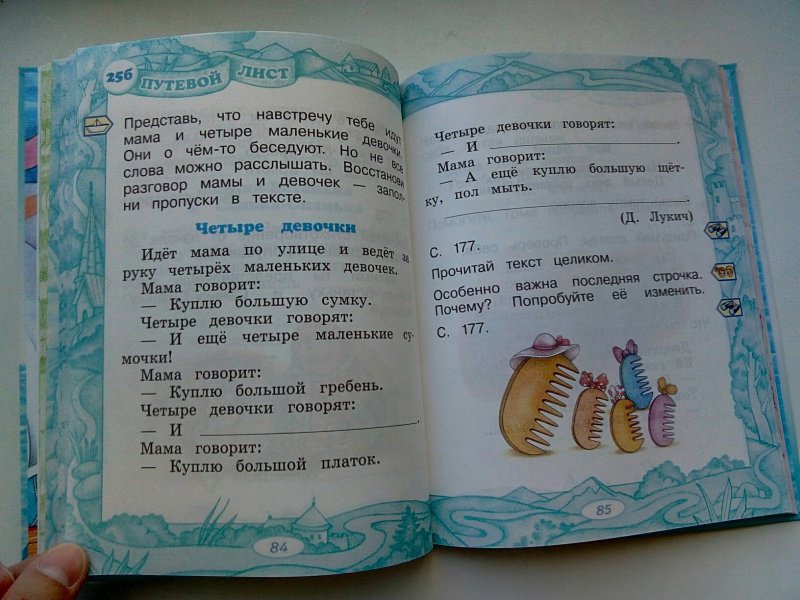 25б
ПУТЕВОЙ ЛИСТ
Представь, что навстречу тебе идут
мама и четыре маленькие девочки.
Они о чём-то беседуют. Но не все
слова можно расслышать. Восстанови
разговор мамы и девочек — запол-
ни пропуски в тексте.
Четыре девочки
Идёт мама по улице и ведёт за
руку четырёх маленьких девочек.
Мама говорит:
— Куплю большую сумку.
Четыре девочки говорят:
— И ещё четыре маленькие су-
мочки!
Мама говорит:
— Куплю большой гребень.
Четыре девочки говорят:
— И
Мама говорит:
— Куплю большой платок.
84
Четыре девочки говорят:
— И
Мама говорит:
— А ещё куплю большую щёт-
ку, пол мыть.
(Д. Лукич)
С. 177.
Прочитай текст целиком.
Особенно важна последняя строчка.
Почему? Попробуйте её изменить.
С. 177.
85